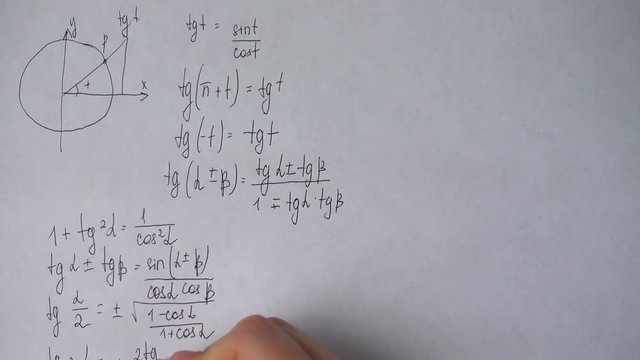 y
tg t
P
t
x
tg t = sin t / cos t
tg(π + t) = tg t
tg(-t) = -tg t
tg(α ± β) = (tg α ± tg β) / (1 ∓ tg α · tg β)
1 + tg²α = 1 / cos²α
tg α ± tg β = sin(α ± β) / (cos α cos β)
tg α/2 = ± √((1 - cos α) / (1 + cos α))
2 tg